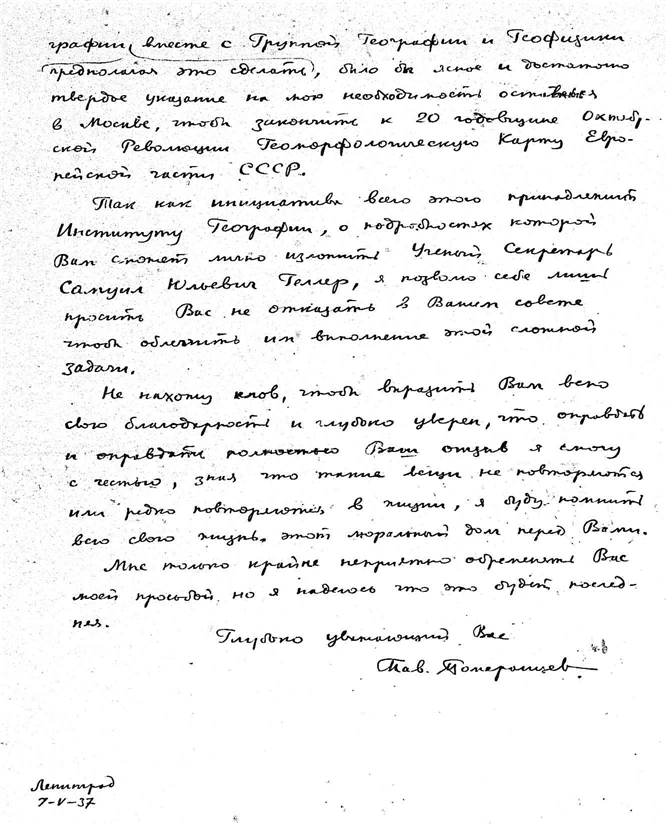 графии, вместе с Группой Географии и Геофизики
предполагая это сделать, было бы ясное и достаточно
твердое указание на мою необходимость остаться
в Москве, чтобы закончить к 20 годовщине Октябр-
ской Революции Геоморфологическую Карту Евро-
пейской части СССР.
Так как инициатива всего этого принадлежит
Институту Географии, о подробностях которой
Вам сможет лично изложить Ученый Секретарь
Самуил Юльевич Геллер, я позволю себе лишь
просить Вас не отказать в Вашем совете
чтобы облегчить им выполнение этой сложной
задачи.
Не нахожу слов, чтобы выразить Вам всю
свою благодарность и глубоко уверен, что оправдать
и оправдать полностью Ваш отзыв я смогу
с честью, зная что такие вещи не повторяются
или редко повторяются в жизни, я буду помнить
всю свою жизнь этот моральный долг перед Вами.
Мне только крайне неприятно обременять Вас
моей просьбой, но я надеюсь что это будет послед-
няя.
Глубоко уважающий Вас
Пав. Померанцев
Ленинград
7-V-37